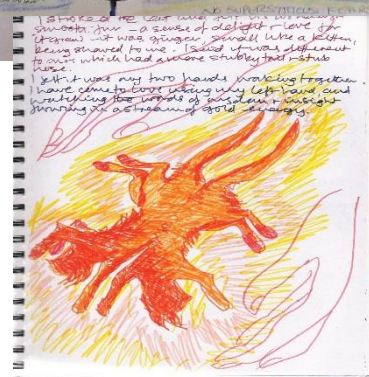 NO SUPERSTITIOUS FEAR
I stroked the cat and
smooth, just a sense of delight + love for
it was ginger, small like a kitten,
being showed to me. I said it was different
to which had a more stubby tail + stub
nose.
I felt it was my two hands working together
I have come to love using my left hand, and
watching the words of wisdom + insight
flowing in a stream of gold energy.